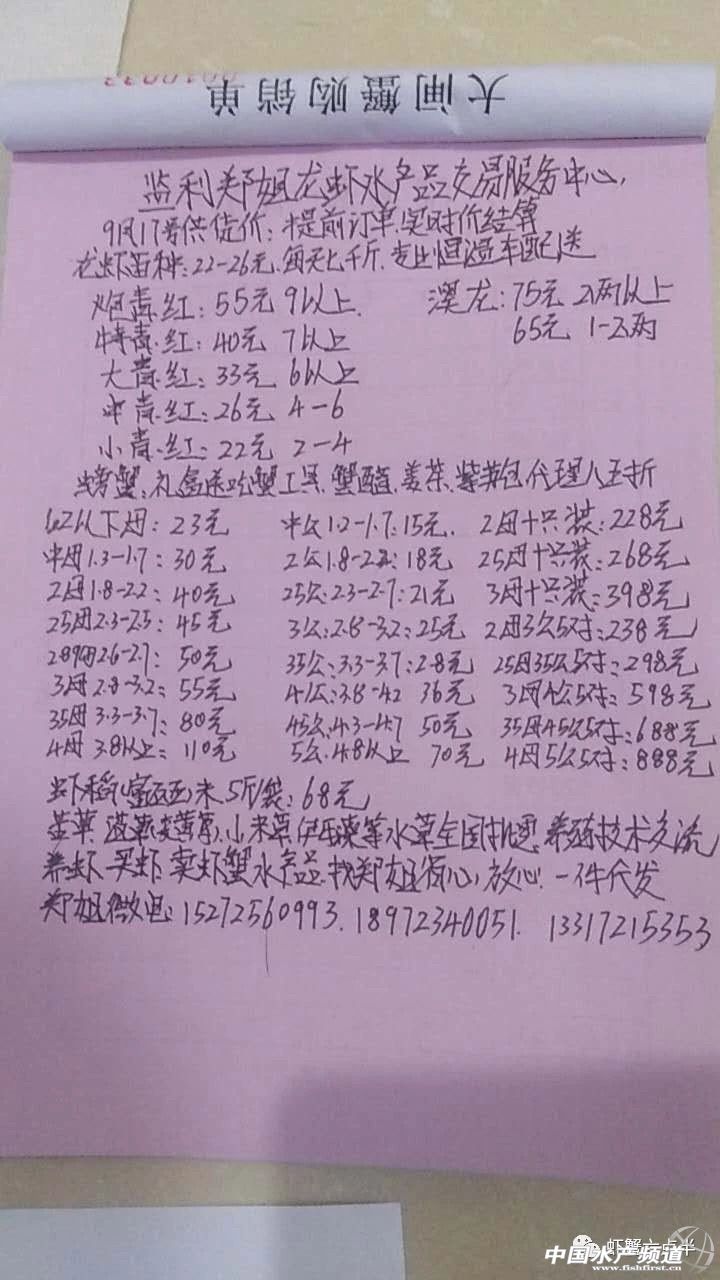 大闸蟹购销单
监利郑姐龙虾水产品交易服务中心,
9月17号供货价:提前订单,实时价结算
龙虾苗种:22-26元,每天七千斤,专业恒温车配送
炮青.红:55元 9以上. 澳龙:75元 2两以上
特青.红:40元 7以上 65元 1-2两
大青.红:33元 6以上
中青.红:26元 4-6
小青.红:22元 2-4
螃蟹、礼盒送吃蟹工具,蟹醋,姜茶,紫苏包代理人五折
以下母:23元 中公1.2-1.7:15元. 2母十只装:228元
中母1.3-1.7:30元 2公1.8-2.2:18元 25母十只装:268元
2母1.8-2.2:40元 25公:2.3-2.7:21元 3母十只装:398元
25母2.3-2.5:45元 3公:2.8-3.2:25元 2母3公5对:238元
2.6-2.7:50元 35公:3.3-3.7:28元 25母35公5对:298元
3母2.8-3.2:55元 4公:3.8-4.2 36元 3母4公5对:598元
35母3.3-3.7:80元 45公:4.3-4.7 50元 35母45公5对:688元
4母3.8以上:110元 5公:4.8以上 70元 4母5公5对:888元
虾稻(富硒)米5斤/袋:68元
小米草,伊乐藻等水草全国批发,养殖技术交流
养虾、买虾、卖虾蟹水产品,找郑姐省心,放心.一件代发
郑姐微电:15272560993.18972340051. 13317215353
虾蟹六点半
中国水产频道
www.fishfirst.cn